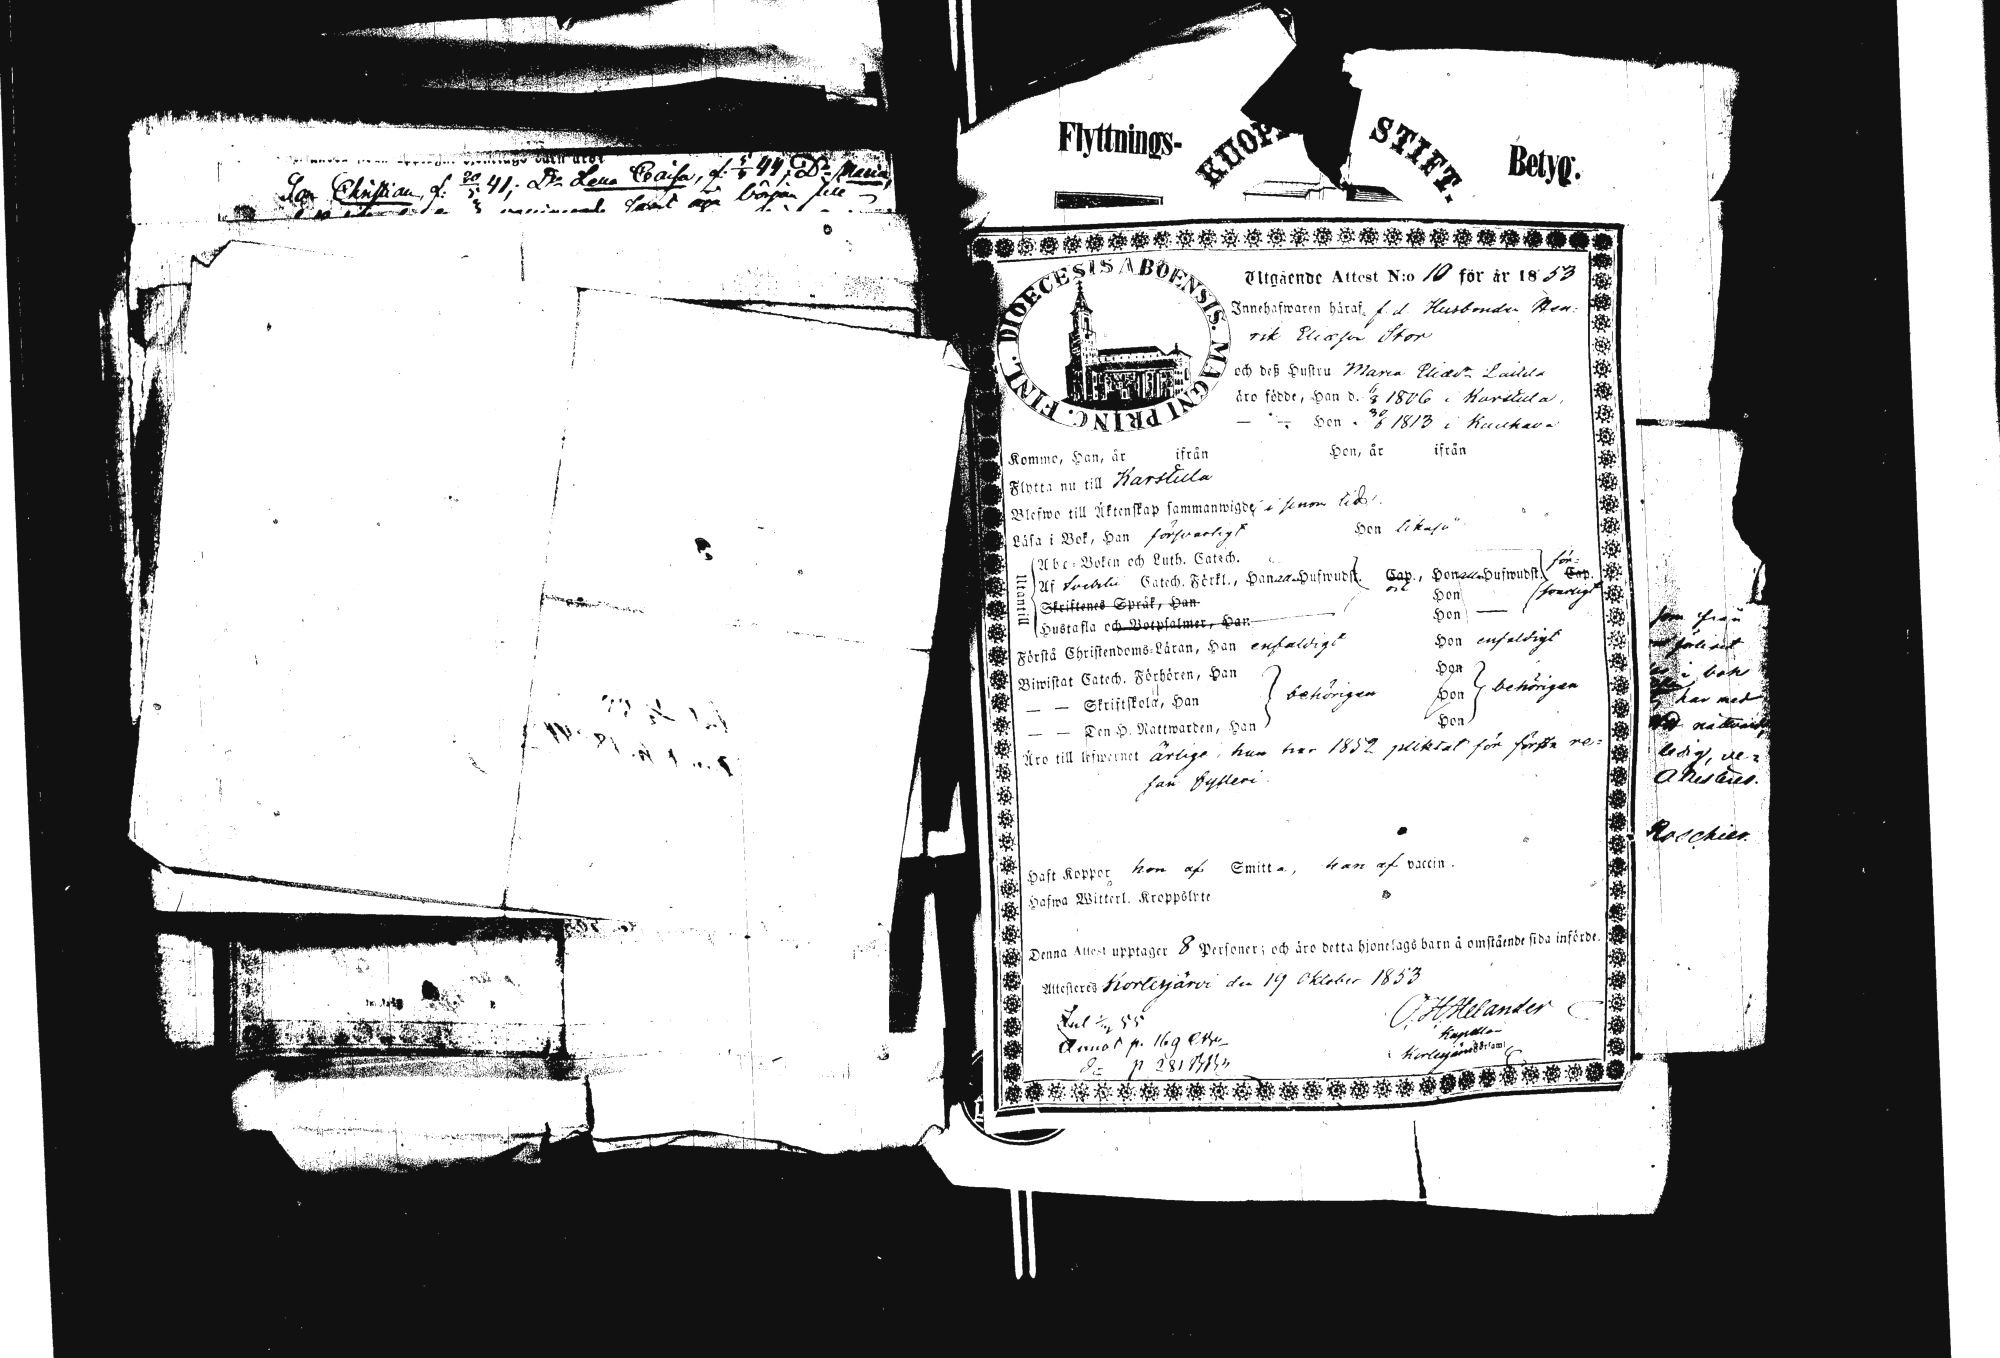 Son Christian, f: 20/5 41; Dr Lena Caisa, f: 5/5 44; Dr Maria,
vaccinerade samt äga början till
Flyttnings-
KUOPIO STIFT.
Betyg.
DIOECESIS ABOENSIS. MAGNI PRINC. FINL.
Utgående Attest N:o 10 för år 1853
Innehafwaren häraf, f. d. Husbonden Hen-
rik Eliasson Stor
och deß Hustru Maria Elias dr
äro födde, Han d. 6/3 1806 i Karstula,
— " — Hon " 30/6 1813 i Kauhava
Komme, Han, år ifrån Hon, år ifrån
Flytta nu till Karstula
Blefwo till Äktenskap sammanwigde i sinom tid.
Läsa i Bok, Han försvarligt Hon likaså
Utantill
Abc-Boken och Luth. Catech.
Af Svebelii Catech. Förkl., Han Hufwudst. Cap., Hon Hufwudst. för- Cap.
svarligt
Skriftenes Språk, Han Hon
Hustafla och Botpsalmer, Han Hon —
Förstå Christendoms-Läran, Han enfaldigt Hon enfaldigt
Biwistat Catech. Förhören, Han Hon
— — Skriftskola, Han behörigen Hon behörigen
— — Den H. Nattwarden, Han Hon
Äro till lefwernet ärlige, han har 1852 pliktat för första re-
san fylleri.
Haft Koppor hon af Smitta, han af vaccin.
Hafwa Witterl. Kroppslyte
Denna Attest upptager 8 Personer; och äro detta hjonelags barn å omstående sida införde.
Attesteres Kortesjärvi den 19 Oktober 1853
C. H. Helander
Kapellan
Kortesjärvi Församl.
Annot p. 169
p 281
som från
i bok
har med
nattvard
ledig, ve-
Attesteres.
Roschier.